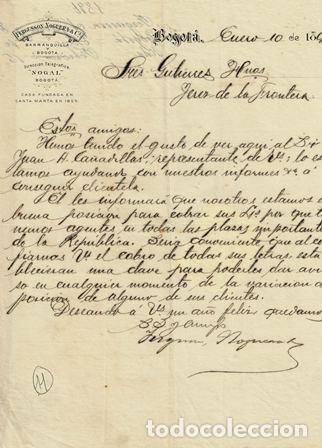 FERGUSSON, NOGUERA & Co.
BARRANQUILLA
BOGOTA
Dirección Telegráfica
"NOGAL"
BOGOTA
CASA FUNDADA EN
SANTA MARTA EN 1855
Bogotá, Enero 10 de 189
Sres Gutierrez Hnos.
Jerez de la Frontera
Estos amigos:
Hemos tenido el gusto de ver aquí al Dr
Juan A. Cañadillas, representante de Vs; lo es
tamos ayudando con nuestros informes &a á
conseguir clientela
El les informará que nosotros estamos en
buena posición para cobrar sus Ls por que te
nemos agentes en todas las plazas importantes
de la República. Sería conveniente que al co
piarnos Vs el cobro de todas sus letras esta
blecieran una clave para poderles dar avi
so en cualquier momento de la variacion de
posicion de alguno de sus clientes.
Deseando á Vs un año feliz quedamos
S. S. y amigos
Fergusson, Noguera &
todocoleccion.net